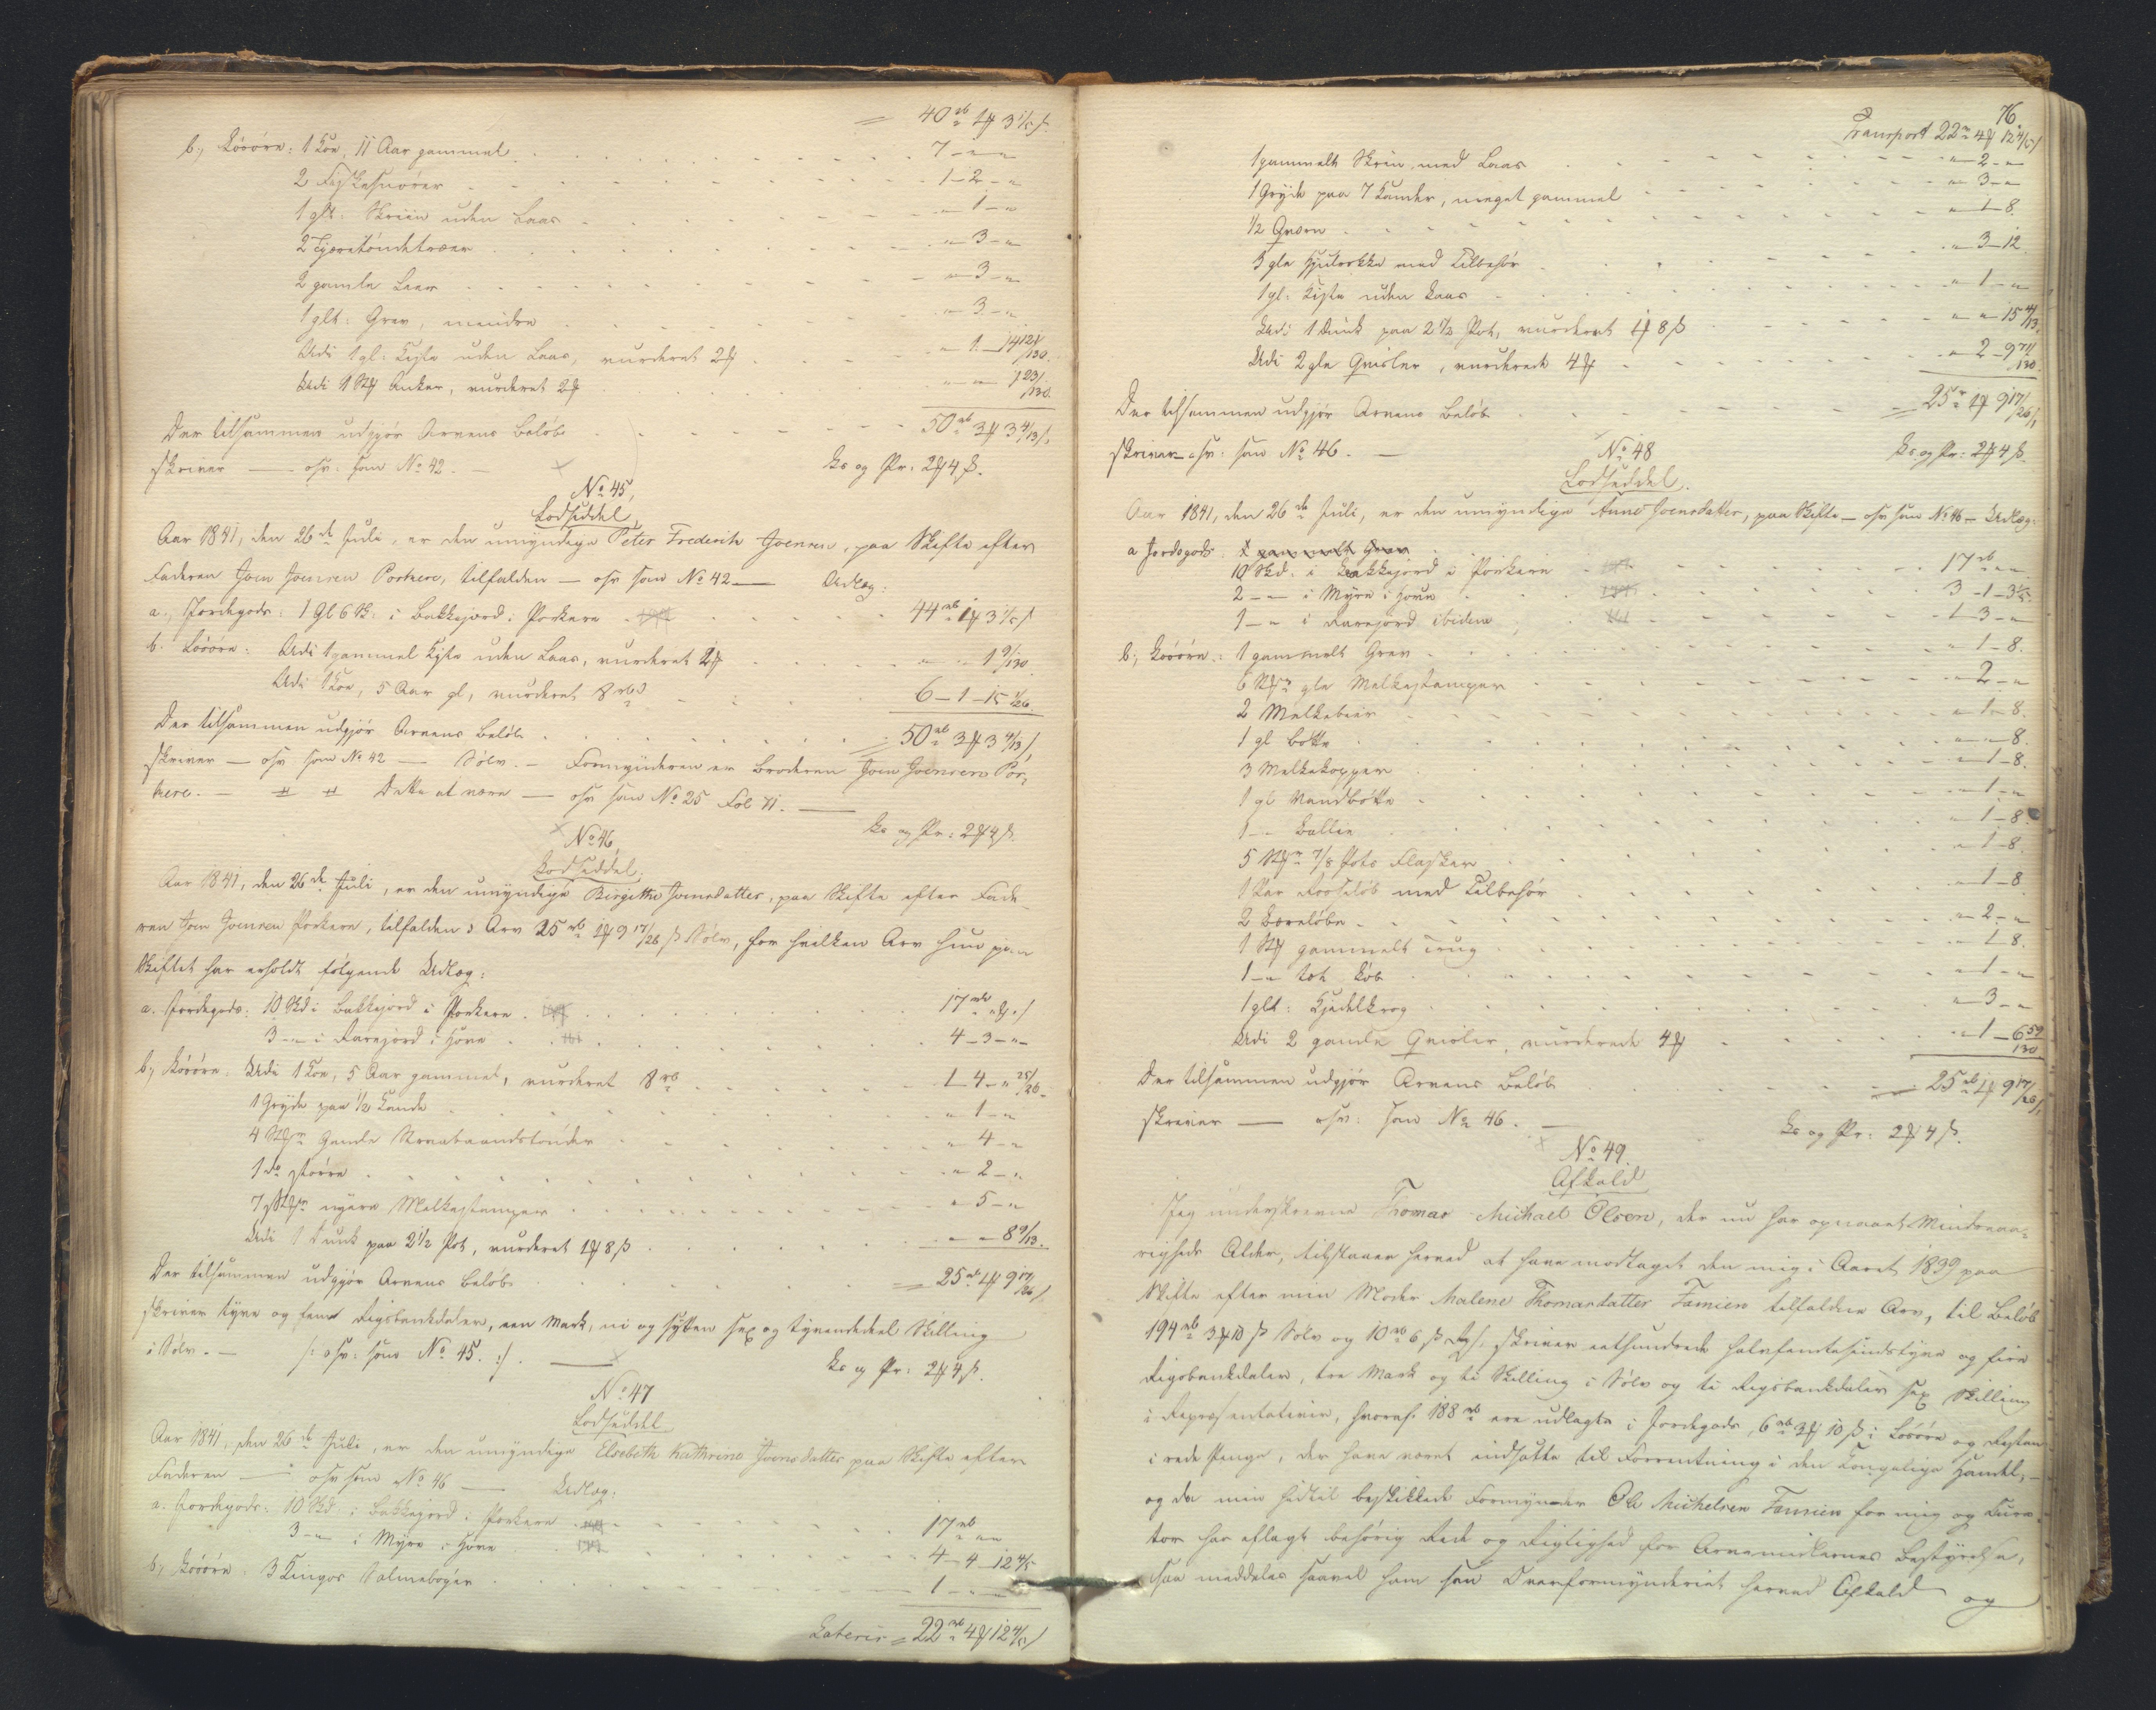 = 40 rb 1 ℳ 3 1/5 ß.
b., Løsøre: 1 Koe, 11 Aar gammel . . . 7 - " - "
2 Fiskesnører . . . 1 - 2 - "
1 glt: Skriin uden Laas . . . " - 1 - "
2 Tjæretøndetræer . . . " - 3 - "
2 gamle Leer . . . " - 3 - "
1 glt: Grev, mindre . . . " - 3 - "
Udi 1 gl: Kiste uden Laas, vurderet 2 ℳ . . . " - 1 - 14 121/130.
Udi 1 Stk Anker, vurderet 2 ℳ . . . " - " - 1 23/130.
Der tilsammen udgjør Arvens Beløb . . . 50 rb 3 ℳ 3 4/13 ß.
skriver — osv: som No 42. — Ks og Pr: 2 ℳ 4 ß.
No 45,
Lodseddel
Aar 1841, den 26de Juli, er den umyndige Peter Frederik Joensen, paa Skifte efter
Faderen Joen Joensen Porkere, tilfalden — osv som No 42 — Udlæg:
a., Jordegods: 1 Gl 6 Sk: i Bakkejord i Porkere . . . 44 rb 1 ℳ 3 1/5 ß
b. Løsøre: Udi 1 gammel Kiste uden Laas, vurderet 2 ℳ . . . " - " - 1 9/130
Udi 1 Koe, 5 Aar gl, vurderet 8 rbd . . . 6 - 1 - 15 1/26.
Der tilsammen udgjør Arvens Beløb . . . = 50 rb 3 ℳ 3 4/13 ß
skriver — osv som No 42 — Sølv. — Formynderen er Broderen Joen Joensen Por-
kere. — # # Dette at være — osv som No 25 Fol 71. —
Ks og Pr: 2 ℳ 4 ß.
No 46,
Lodseddel.
Aar 1841, den 26de Juli, er den umyndige Birgithe Joensdatter, paa Skifte efter Fade-
ren Joen Joensen Porkere, tilfalden i Arv 25 rb 1 ℳ 9 17/26 ß Sølv, for hvilken Arv hun paa
Skiftet har erholdt følgende Udlæg:
a. Jordegods: 10 Skd i Bakkejord i Porkere . . . 17 rb " ℳ " ß
3 - " i Rarejord i Hove . . . 4 - 3 - "
b., Løsøre: Udi 1 Koe, 5 Aar gammel, vurderet 8 rb . . . 1 - 4 - " 25/26.
1 Gryde paa 1/2 Kande . . . " - 1 - "
4 Stkr Gamle Straabaandstønder . . . " - 4 - "
1 do større . . . " - 2 - "
7 Stkr nyere Melkestamper . . . " - 5 - "
Udi 1 Dunk paa 2 1/2 Pot, vurderet 1 ℳ 8 ß . . . " - " - 8 9/13.
Der tilsammen udgjør Arvens Beløb . . . = 25 rb 1 ℳ 9 17/26 ß
skriver tyve og fem Rigsbankdaler, een Mark, ni og sytten sex og tyvendedeel Skilling
i Sølv. — /: osv: som No 45. :/. — Ks og Pr: 2 ℳ 4 ß.
No 47
Lodseddel
Aar 1841, den 26de Juli, er den umyndige Elsebeth Kathrine Joensdatter paa Skifte efter
Faderen — osv som No 46 — Udlæg:
a. Jordegods: 10 Skd i Bakkejord i Porkere . . . 17 rb " "
3 - " i Myre i Hove . . . 4 - 4 - 12 4/5
b., Løsøre: 3 Kingos Salmebøger . . . 1 - " - "
Lateris = 22 rb 4 ℳ 12 4/5 ß
76
Transport 22 rb 4 ℳ 12 4/5 ß
1 gammelt Skrin, med Laas . . . " - 2 - "
1 Gryde paa 7 Kander, meget gammel . . . " - 3 - "
1/2 Qværn . . . " - 1 - 8.
3 gle Hjulrokke med Tilbehør . . . " - 3 - 12
1 gl: Kiste uden Laas . . . " - 1 - "
Udi 1 Dunk paa 2 1/2 Pot, vurderet 1 ℳ 8 ß . . . " - " - 15 4/13.
Udi 2 gle Qvisler, vurderede 4 ℳ . . . " - 2 - 9 71/130
Der tilsammen udgjør Arvens Beløb . . . = 25 rb 1 ℳ 9 17/26 ß
skriver — osv: som No 46. — Ks og Pr: 2 ℳ 4 ß.
No 48
Lodseddel.
Aar 1841, den 26de Juli, er den umyndige Anne Joensdatter, paa Skifte — osv som No 46 — Udlæg:
a Jordegods: 1 gammelt Grev
10 Skd. i Bakkejord i Porkere . . . 17 rb " "
2 - " i Myre i Hove . . . 3 - 1 - 3 1/5.
1 - " i Rarejord ibidem . . . 1 - 3 - "
b., Løsøre: 1 gammelt Grev . . . " - 1 - 8.
6 Stkr gle Melkestamper . . . " - 2 - "
2 Melkebøer . . . " - 1 - 8.
1 gl Bøtte . . . " - " - 8.
3 Melkekopper . . . " - 1 - 8.
1 gl Vandbøtte . . . " - 1 - "
1 - " Ballie . . . " - 1 - 8.
5 Stkr 7/8 Pots Flasker . . . " - 1 - 8.
1 Par med Tilbehør . . . " - 1 - 8
2 Bæreløbe . . . " - 2 - "
1 Stk gammelt Trug . . . " - 1 - 8.
1 - " Løb . . . " - 1 - "
1 glt: Kjedelkrog . . . " - 3 - "
Udi 2 gamle Qvisler, vurderede 4 ℳ . . . " - 1 - 6 59/130
Der tilsammen udgjør Arvens Beløb . . . = 25 rb 1 ℳ 9 17/26 ß
skriver — osv: som No 46. — Ks og Pr: 2 ℳ 4 ß.
No 49.
Afkald
Jeg underskrevne Thomas Michael Olsen, der nu har opnaaet Mindreaa-
righeds Alder, tilstaaer herved at have modtaget den mig i Aaret 1839 paa
Skifte efter min Moder Malene Thomasdatter Famien tilfaldne Arv, til Beløb
194 rb 3 ℳ 10 ß Sølv og 10 rb 6 ß skriver eethundrede halvfemtesindstyve og fire
Rigsbankdaler, tre Mark og ti Skilling i Sølv og ti Rigsbankdaler sex Skilling
i Repræsentativer, hvoraf 188 rb ere udlagte i Jordegods, 6 rb 3 ℳ 10 ß i Løsøre og Resten
i rede Penge, der have været indsatte til Forrentning i den Kongelige Handel, —
og da min hidtil beskikkede Formynder Ole Michelsen Famien for mig og Kura-
tor har aflagt behørig Rede og Rigtighed for Arvemidlernes Bestyrelse,
saa meddeles saavel ham som Overformynderiet herved Afkald og